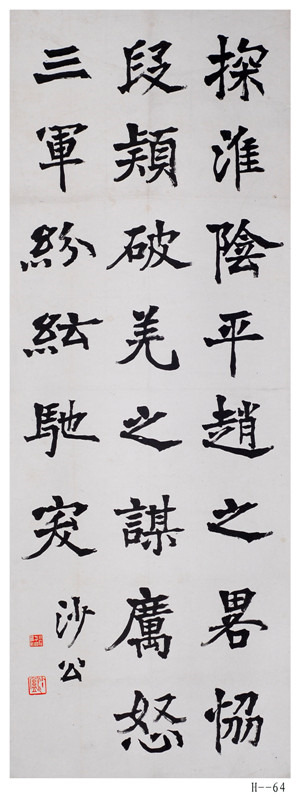 探淮陰平趙之畧恊
段熲破羌之謀厲怒
三軍紛紜馳突
沙公
H--64